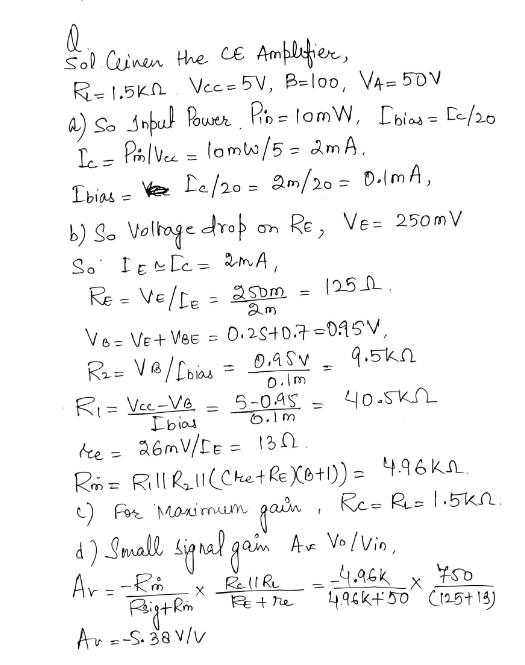 Q.
Sol. Ceinen the CE Amplifier,
RL = 1.5KΩ. Vcc = 5V, B=100, VA = 50V
a) So Input Power. Pin = 10mW, Ibias = Ic/20
Ic = Pin/Vcc = 10mW/5 = 2mA.
Ibias = Ic/20 = 2m/20 = 0.1mA,
b) So Voltage drop on RE, VE = 250mV
So IE ≃ Ic = 2mA,
RE = VE/IE = 250m/2m = 125Ω.
VB = VE + VBE = 0.25+0.7 = 0.95V,
R2 = VB/Ibias = 0.95V/0.1m = 9.5KΩ
R1 = Vcc-VB/Ibias = 5-0.95/0.1m = 40.5KΩ
re = 26mV/IE = 13Ω.
Rin = R1||R2||((re+RE)(B+1)) = 4.96KΩ.
c) For Maximum gain, Rc = RL = 1.5KΩ.
d) Small signal gain Av Vo/Vin,
Av = -Rin/Rsig+Rin × Rc||RL/RE+re = -4.96K/4.96K+50 × 750/(125+13)
Av = -5.38 V/V